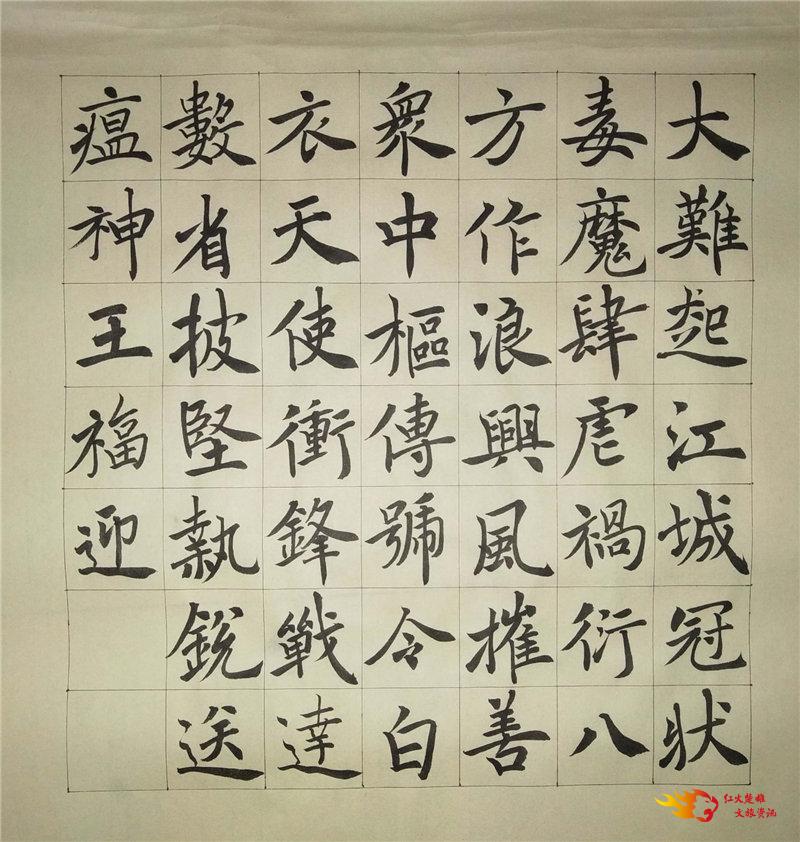 大難起江城冠狀
毒魔肆虐禍衍八
方作浪興風摧善
衆中樞傳號令白
衣天使衝鋒戰達
數省披堅執銳送
瘟神王福迎
红火楚雄
文旅资讯